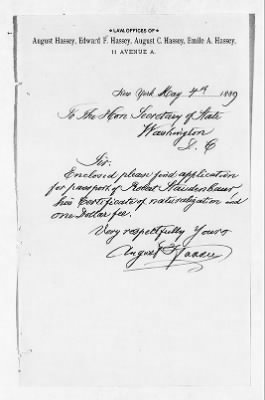 LAW OFFICES OF
August Hassey, Edward F. Hassey, August C. Hassey, Emile A. Hassey,
11 AVENUE A.
New York May 4th 1889
To The Hon Secretary of State
Washington
D. C
Sir.
Enclosed please find application
for passport of Staudenbaur
his Certificate of naturalization and
one Dollar fee.
Very respectfully Yours
August Hassey